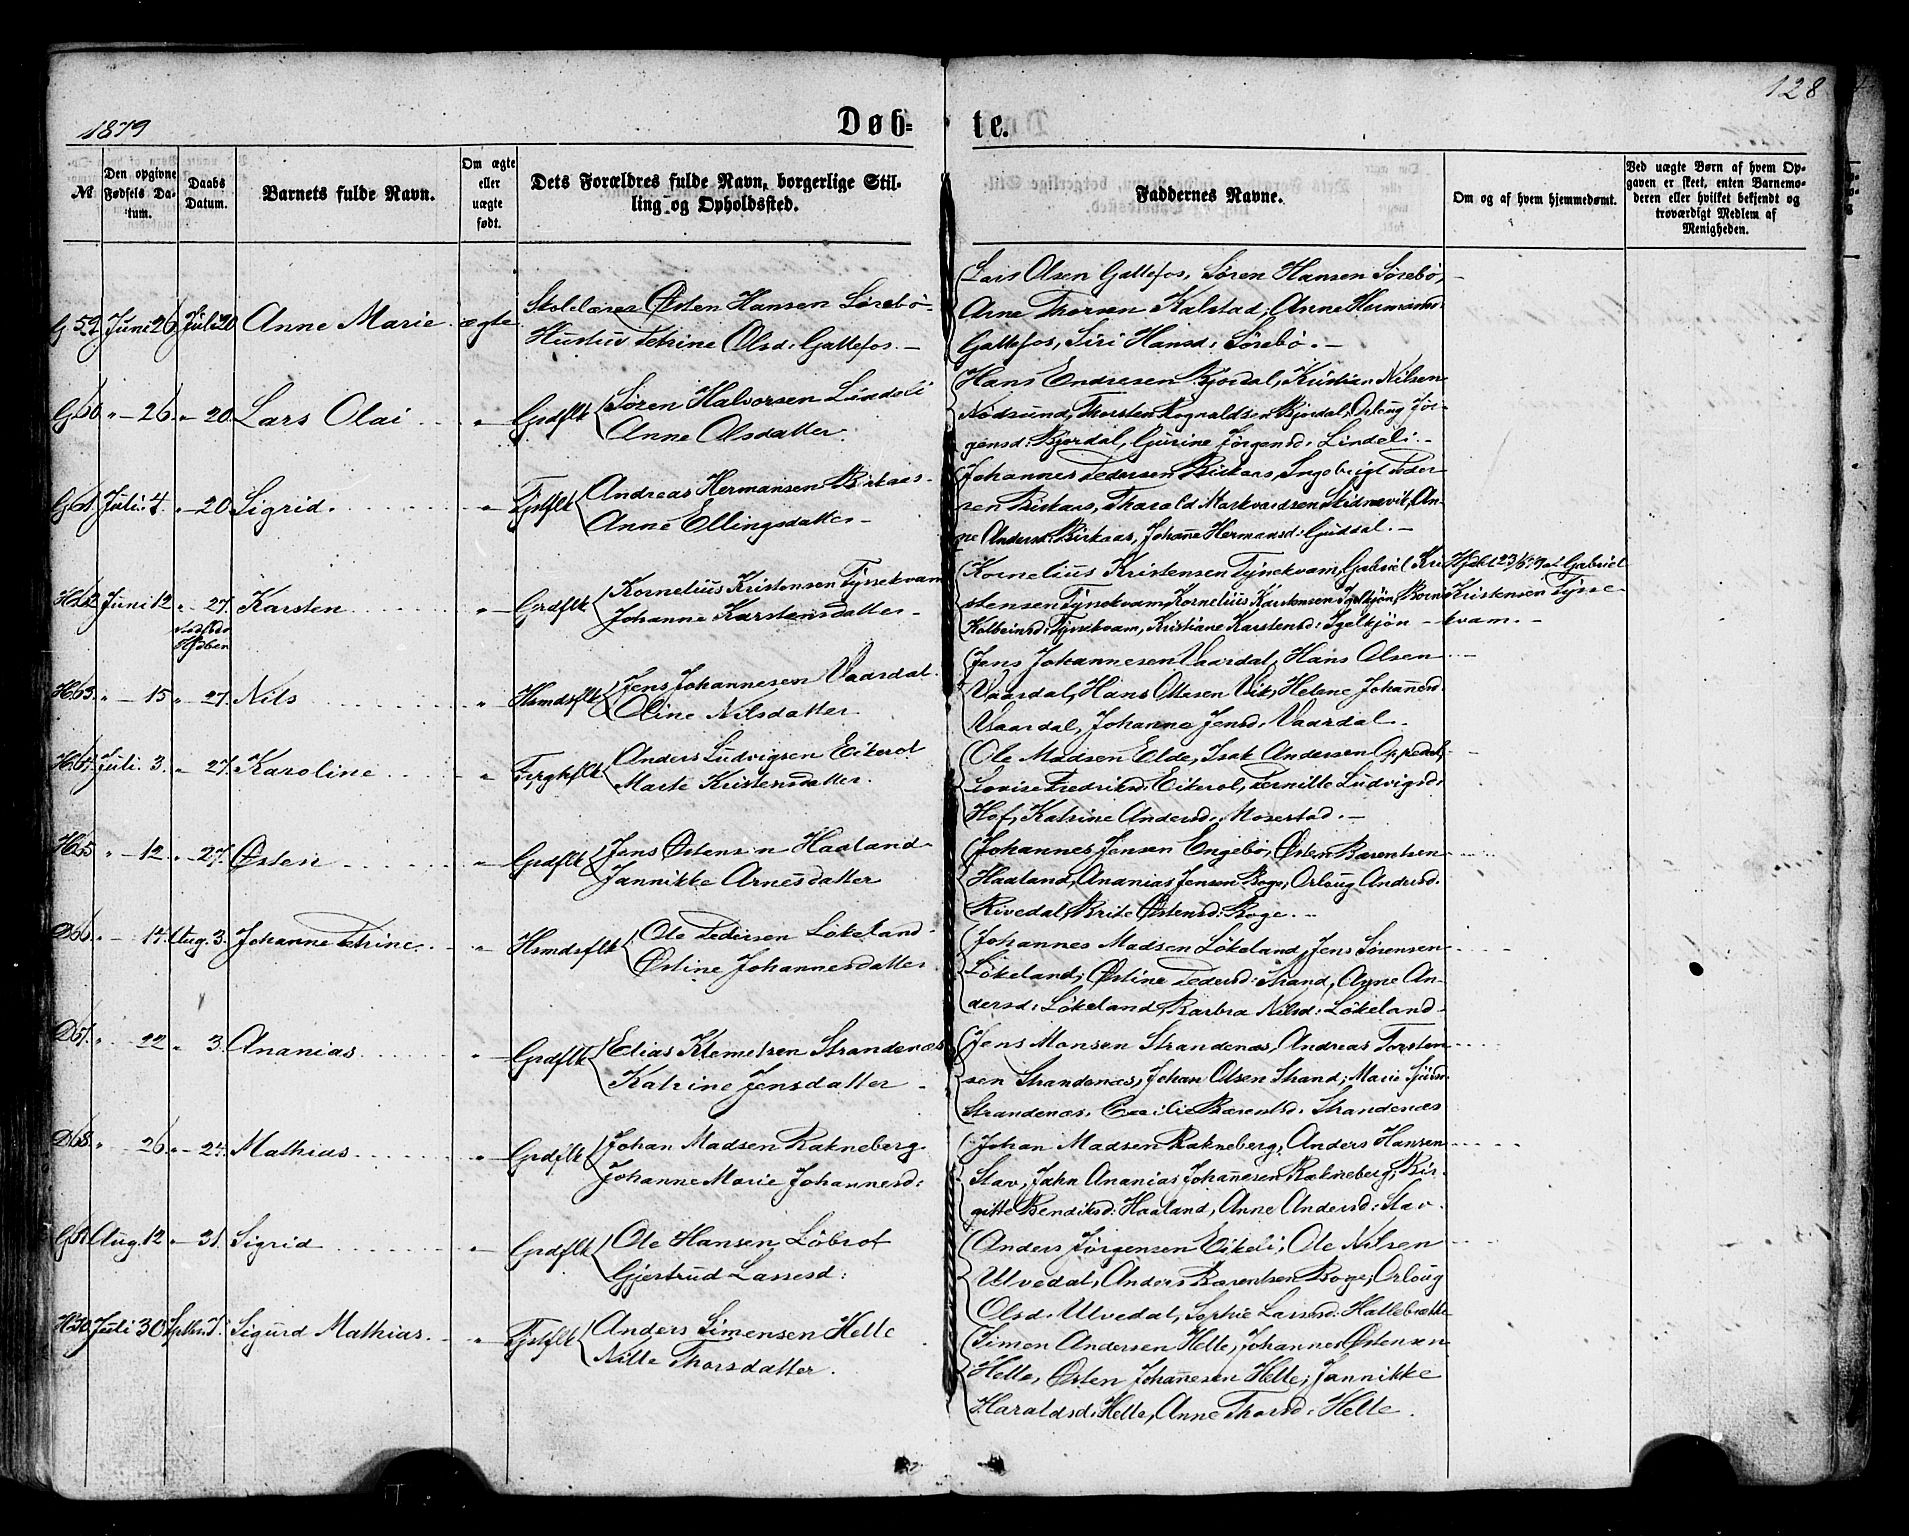 128
1879
Døb-te.
№
Den opgivne Fødsels Datum.
Daabs Datum.
Barnets fulde Navn.
Om ægte eller uægte født.
Dets Forældres fulde Navn, borgerlige Stilling og Opholdssted.
Faddernes Navne.
Om og af hvem hjemmedømt.
Ved uægte Børn af hvem Opgaven er skeet, enten Barnemoderen eller hvilket bekjendt og troværdigt Medlem af Menigheden.
G 59 Juni 26 Juli 20 Anne Marie ægte Østen Hansen Sørebø
Hustru Thrine Olsd: Gattefos. —
Lars Olsen Gattefos, Søren Hansen Sørebø,
Arne Thorsen Kalstad, Anne Hermansd:
Gattefos, Siri Hansd: Sørebø. —
G 60 " — 26 " 20 Lars Olai " Grdflk Søren Halvorsen Lindeli
Anne Olsdatter.
Hans Endresen Bjordal, Kristian Nilsen
Nødsund, Thorsten Rognaldsen Bjordal, Orloug Jør-
gensd: Bjordal, Gurine Jørgensd: Lindeli. —
G 61 Juli 4. " 20 Sigrid. " Andreas Hermansen Birkaas
Anne Ellingsdatter —
Johannes Pedersen Birkaas, Ingebrigt Peder-
sen Birkaas, Tharald Markvardsen Skidnevik, An-
ne Andersd: Birkaas, Johañe Hermansd: Guddal. —
H 62 Juni 12 " 27. Karsten " Grdflk Kornelius Kristensen Tynekvam
Johanne Karstensdatter —
Kornelius Kristensen Tynekvam, Gabriel Kri-
stensen Tynekvam, Kornelius Karstensen Igelkjøn,
Kolbeinsd: Tynekvam, Kristiane Karstensd: Igelkjøn —
Gabriel
Kristensen Tynne-
kvam. —
H 63. " — 15 " 27. Nils " Hsmdsflk Jens Johannesen Vaardal.
Oline Nilsdatter
Jens Johannesen Vaardal, Hans Olsen
Vaardal, Hans Ottesen Vik, Helene Johañesd:
Vaardal, Johanne Jensd: Vaardal —
H 64 Juli 3. " 27. Karoline " Anders Ludvigsen Eikerol
Marte Kristensdatter.
Ole Madsen Elde, Isak Andersen Oppedal,
Lovise Fredriksd: Eikerol, Pernille Ludvigsd:
Hof, Katrine Andersd: Moserstad. —
H 65 " — 12. " 27. Østen " Grdflk Jens Østensen Haaland
Jannikke Arnesdatter
Johannes Jensen Engebø, Østen Barentsen
Haaland, Ananias Jensen Boge, Orloug Andersd:
Rivedal, Brite Østensd: Boge. —
D 66. " — 14. Aug. 3. Johanne Thrine. " Hsmdsflk Ole Pedersen Løkeland
Østine Johannesdatter
Johannes Madsen Løkeland, Jens Sørensen
Løkeland, Østine Pedersd: Strand, Anne An-
dersd: Løkeland, Barbra Nilsd: Løkeland —
D 67. " 22 " 3. Ananias " Grdflk Elias Klemetsen Strandenæs
Katrine Jensdatter —
Jens Monsen Strandenæs, Andreas Torsten-
sen Strandenæs, Johan Olsen Strand, Marie
Strandenæs, Cecilie Barentsd: Strandenæs
D 68. " 26 " 24. Mathias " Grdflk Johan Madsen Rakneberg.
Johanne Marie Johannesd:
Johan Madsen Rakneberg, Anders Hansen
Stav, Jahn Ananias Johañesen Rakneberg, Bir-
gitte Bendiksd: Haaland, Anne Andersd: Stav.
G 69 Aug. 12 " 31. Sigrid " Grdflk Ole Hansen Løbrot
Gjertrud Lassesd:
Anders Jørgensen Eikeli, Ole Nilsen
Ulvedal, Anders Barentsen Boge, Orloug
Olsd: Ulvedal, Sophie Lassesd: Hattebrække
H 70 Juli 30 Septbr. 7. Sigurd Mathias. " Anders Simensen Helle
Nille Thorsdatter.
Simon Andersen Helle, Johannes Østensen
Helle, Østen Johañesen Helle, Jannikke
Haraldsd: Helle, Anne Thorsd: Helle.